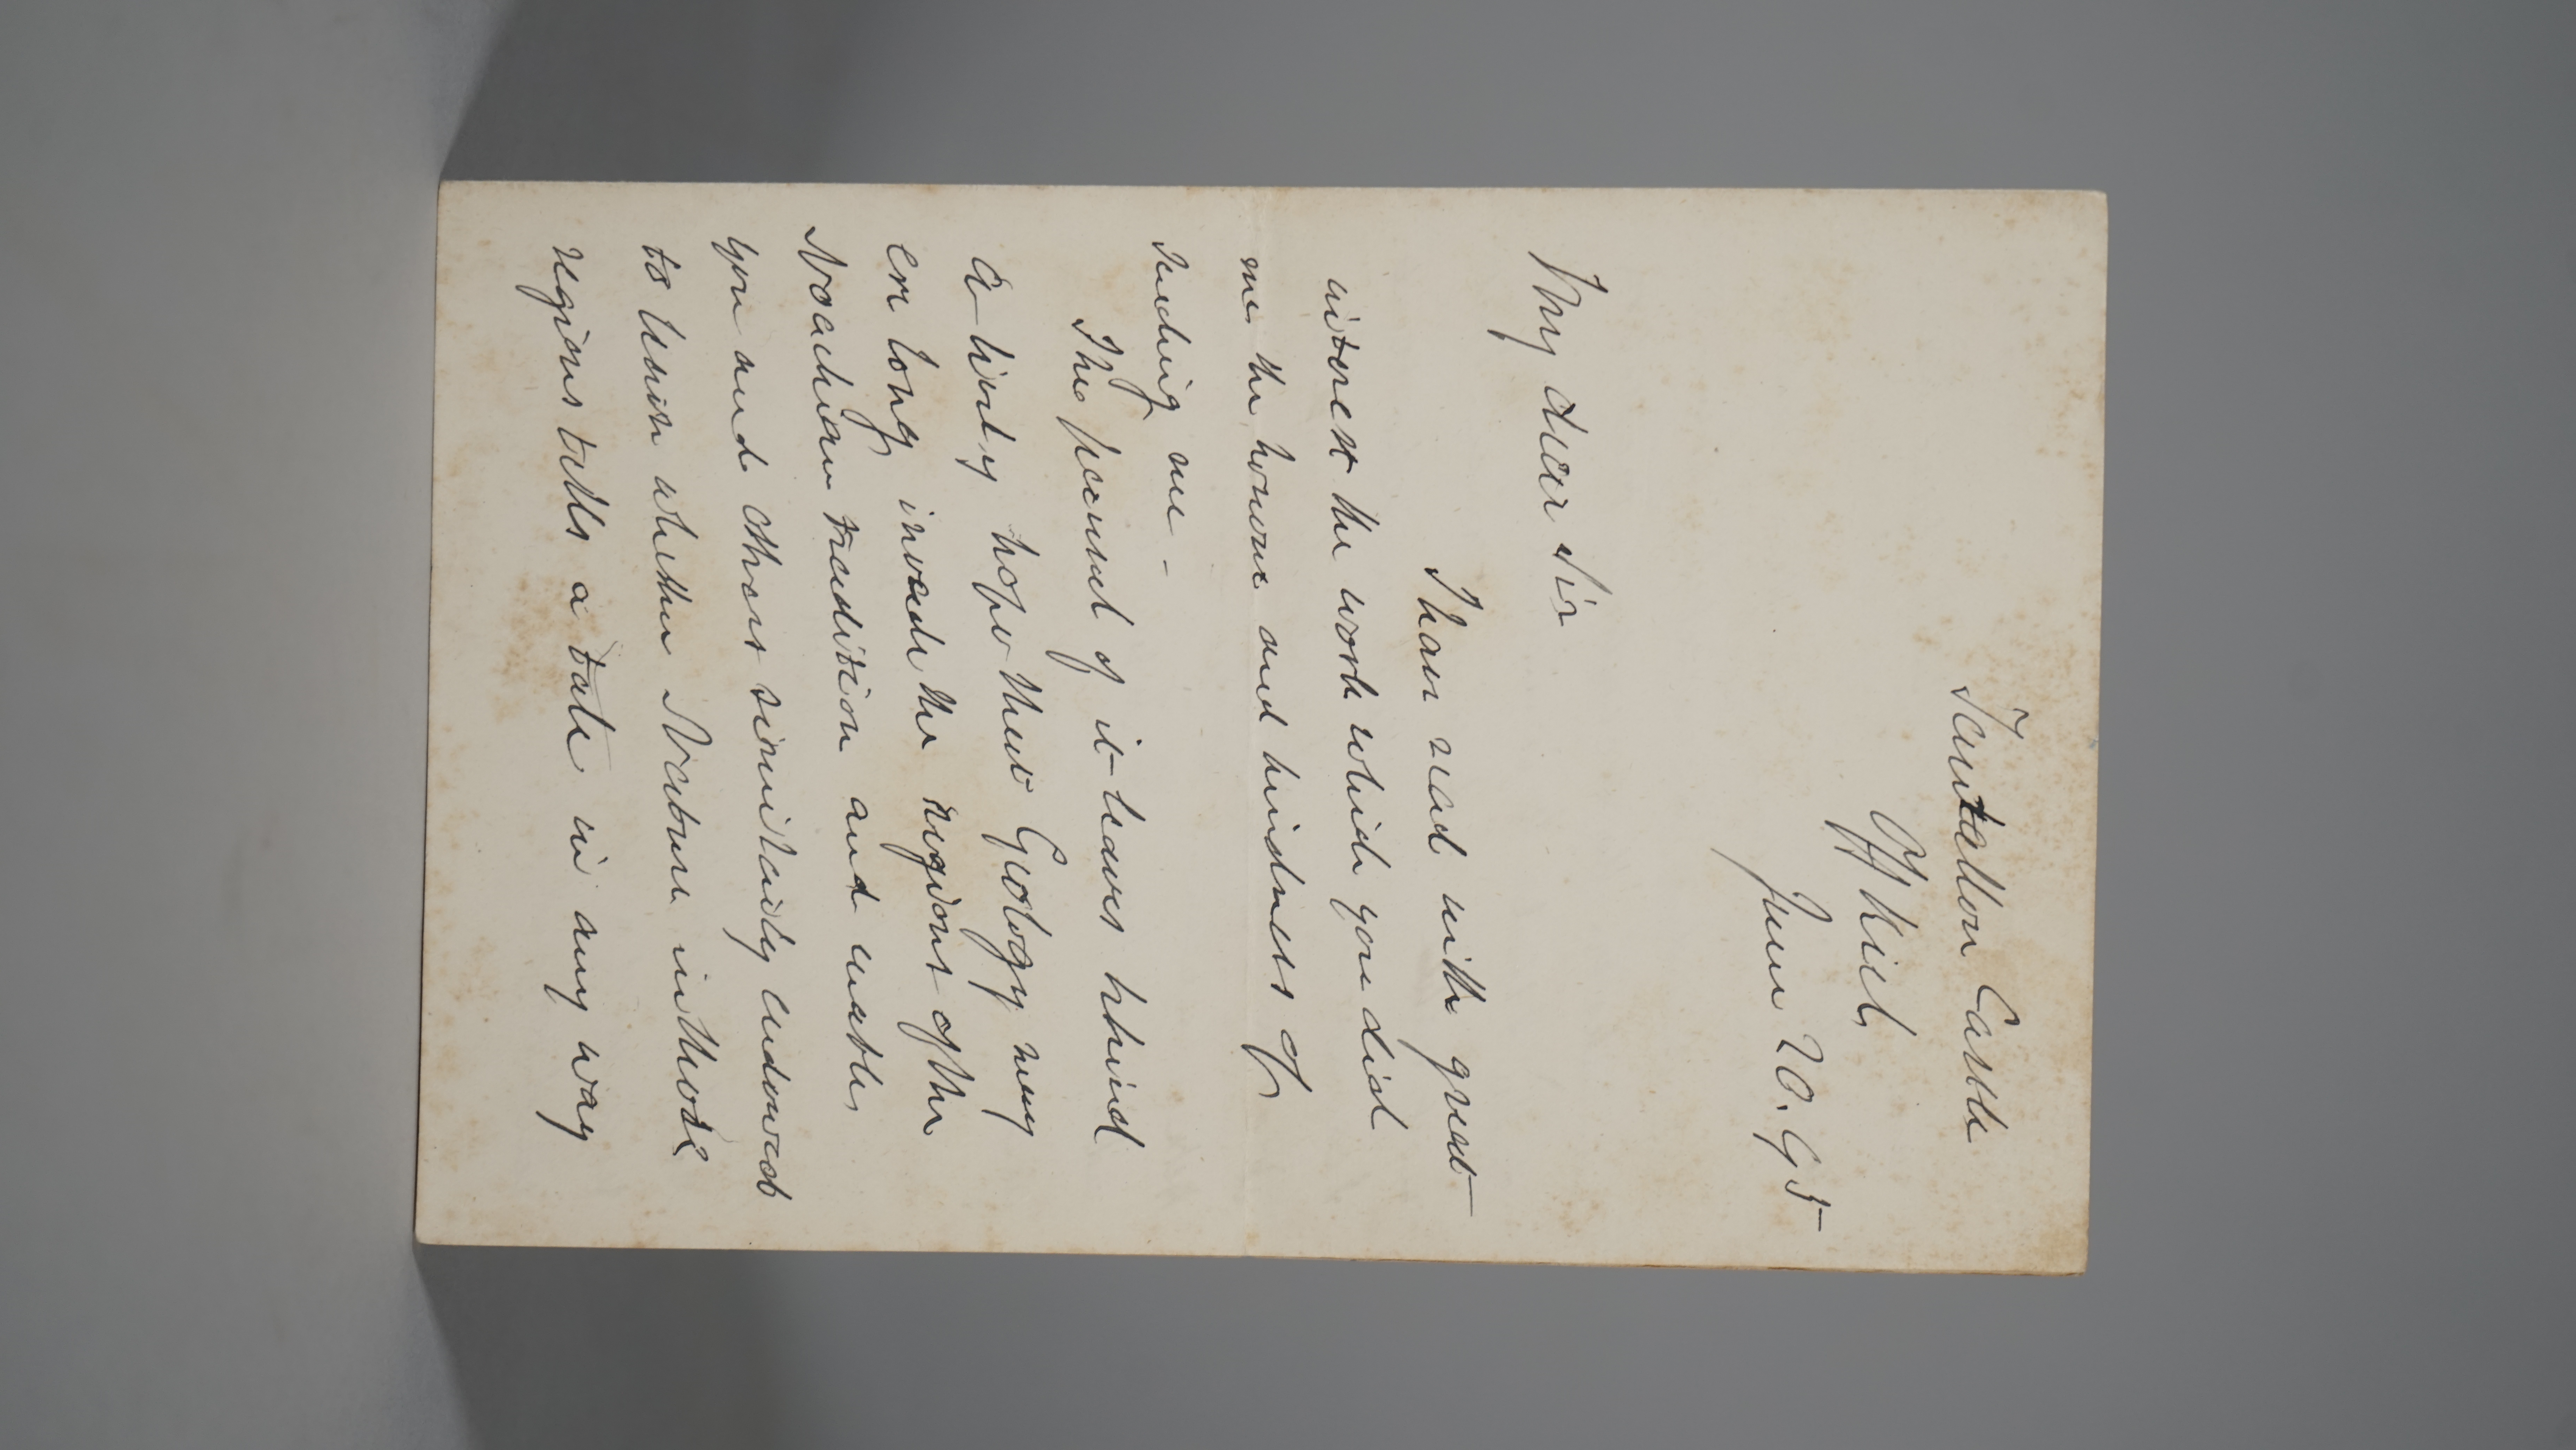 Tantallon Castle
Off Kiel,
June 20. 95
My dear Sir
I have read with great
interest the work which you did
me the honour and kindness of
sending me –
The perusal of it leaves behind
a lively hope that Geology may
ere long invade the regions of the
Noachian tradition and enable
you and others similarly endowed
to learn whether Nature in those
regions tells a tale in any way